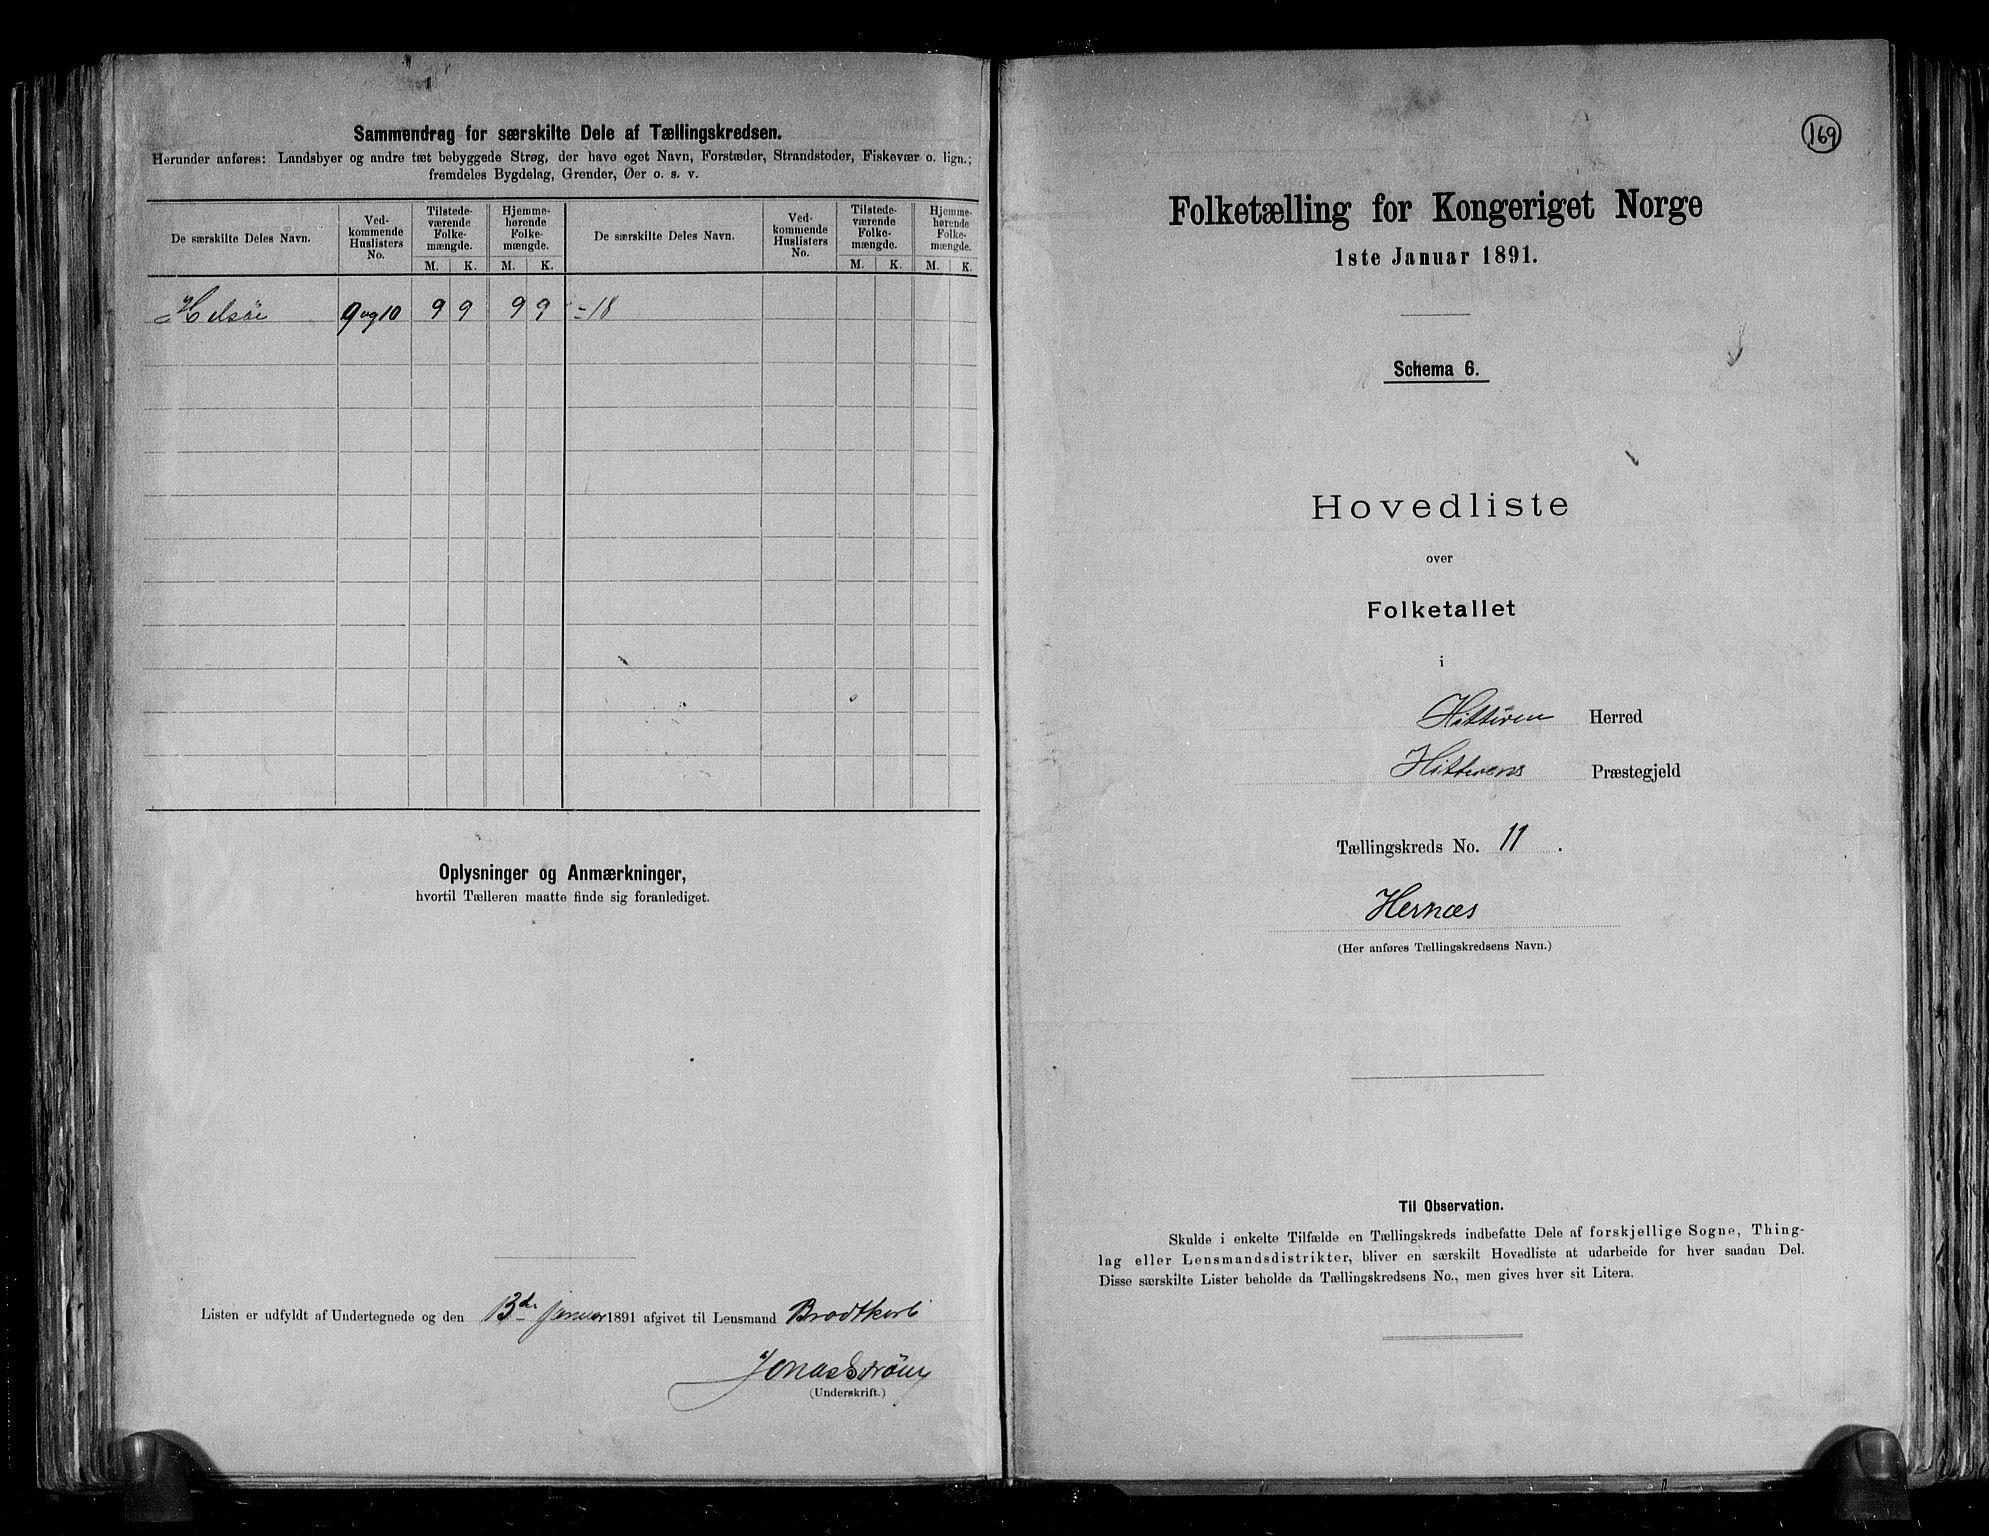 Sammendrag for særskilte Dele af Tællingskredsen.
Herunder anføres: Landsbyer og andre tæt bebyggede Strøg, der have eget Navn, Forstæder, Strandsteder, Fiskevær o. lign.;
fremdeles Bygdelag, Grender, Øer o. s. v.
De særskilte Deles Navn. Ved-kommende Huslisters No. Tilstede-værende Folke-mængde. Hjemme-hørende Folke-mængde. De særskilte Deles Navn. Ved-kommende Huslisters No. Tilstede-værende Folke-mængde. Hjemme-hørende Folke-mængde.
M. K. M. K. M. K. M. K.
Helsöi 9 og 10 9 9 9 9 = 18
Oplysninger og Anmærkninger,
hvortil Tælleren maatte finde sig foranlediget.
Listen er udfyldt af Undertegnede og den 13de januar 1891 afgivet til Lensmand Brodtkorb
Jonas Strøm
(Underskrift.)
169
Folketælling for Kongeriget Norge
1ste Januar 1891.
Schema 6.
Hovedliste
over
Folketallet
i
Hitteren Herred
Hitterens Præstegjeld
Tællingskreds No. 11.
Hernæs
(Her anføres Tællingskredsens Navn.)
Til Observation.
Skulde i enkelte Tilfælde en Tællingskreds indbefatte Dele af forskjellige Sogne, Thing-
lag eller Lensmandsdistrikter, bliver en særskilt Hovedliste at udarbeide for hver saadan Del.
Disse særskilte Lister beholde da Tællingskredsens No., men gives hver sit Litera.